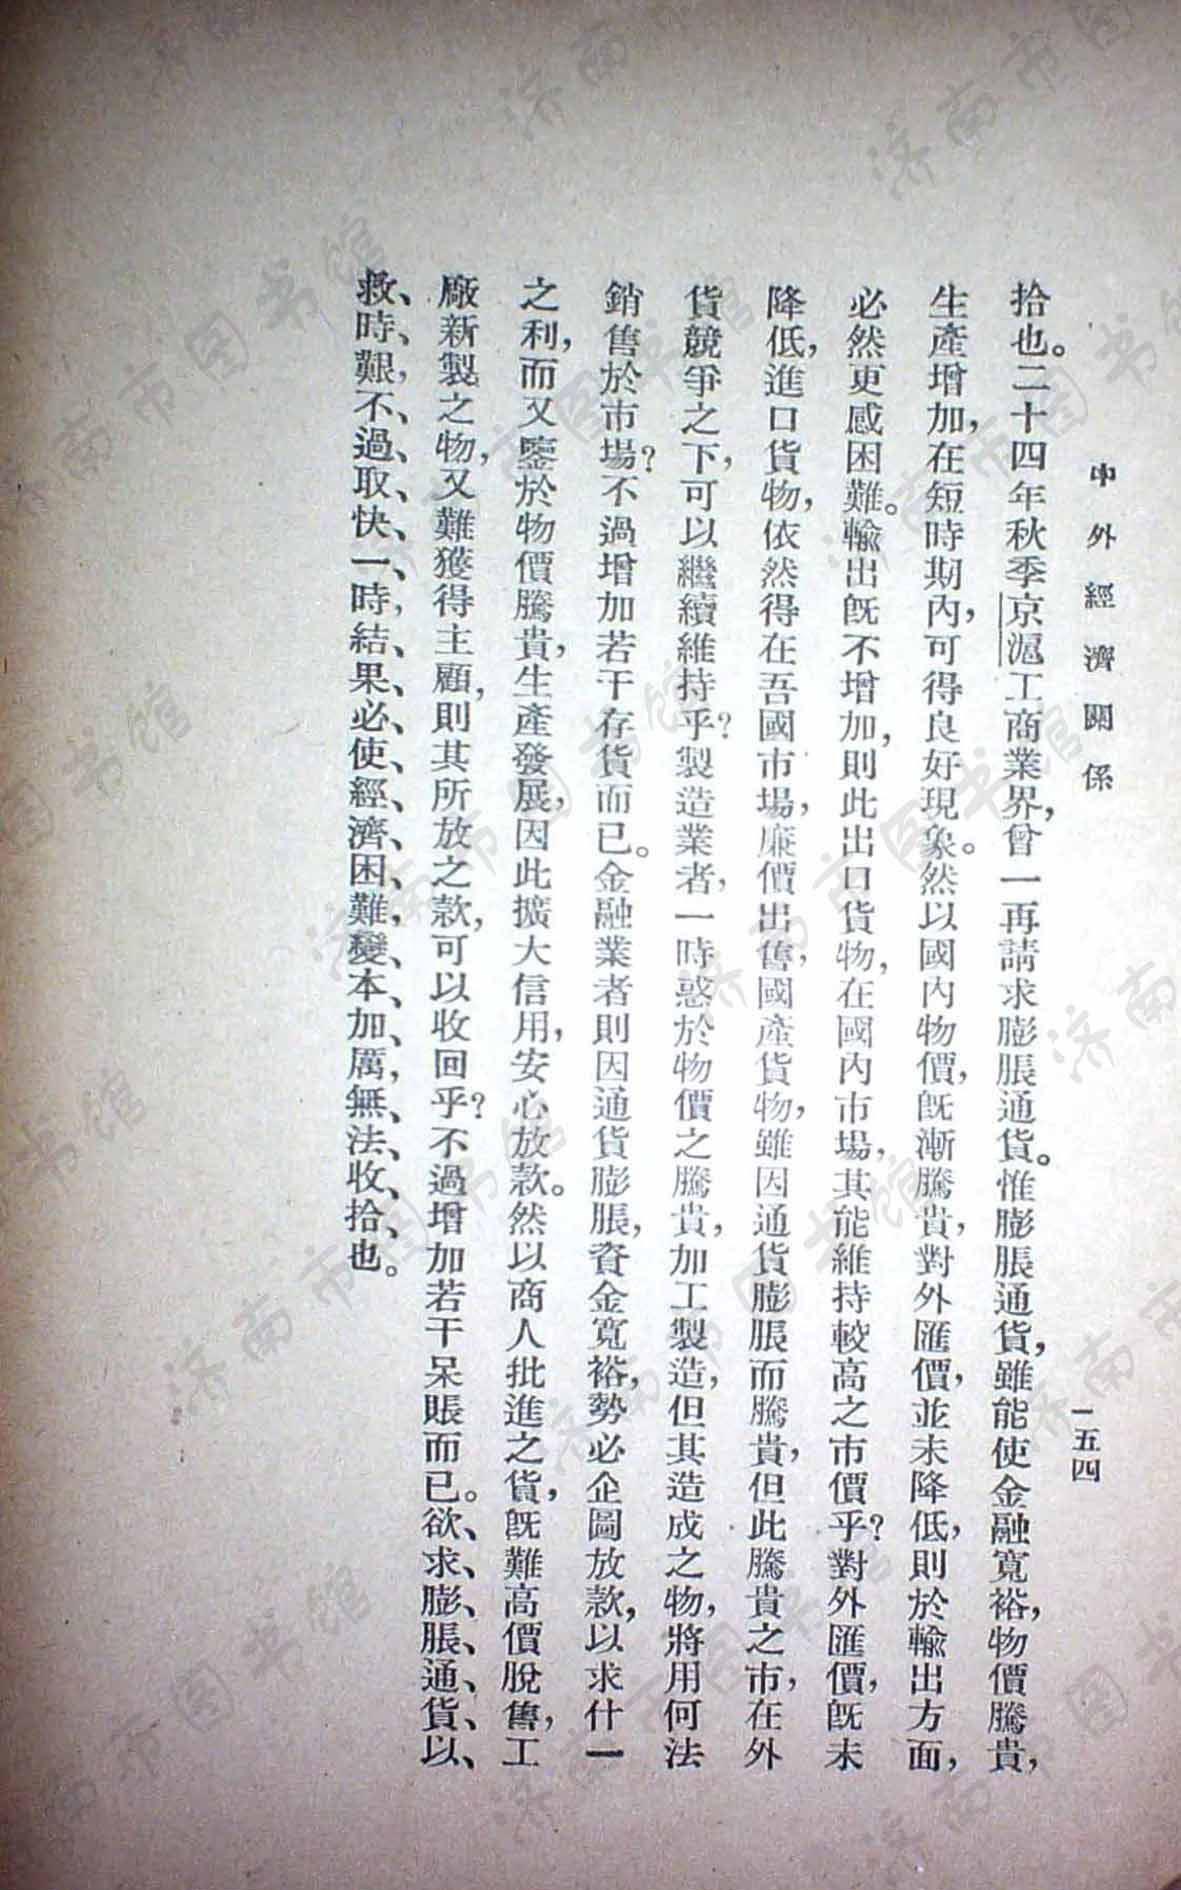 中外經濟關係
一五四
拾也。二十四年秋季京滬工商業界，曾一再請求膨脹通貨。惟膨脹通貨，雖能使金融寬裕，物價騰貴，
生產增加，在短時期內，可得良好現象。然以國內物價，旣漸騰貴，對外匯價，並未降低，則於輸出方面，
必然更感困難。輸出旣不增加，則此出口貨物，在國內市場，其能維持較高之市價乎？對外匯價，旣未
降低，進口貨物，依然得在吾國市場，廉價出售，國產貨物，雖因通貨膨脹而騰貴，但此騰貴之市，在外
貨競爭之下，可以繼續維持乎？製造業者，一時惑於物價之騰貴，加工製造，但其造成之物，將用何法
銷售於市場？不過增加若干存貨而已。金融業者則因通貨膨脹，資金寬裕，勢必企圖放款，以求什一
之利，而又鑒於物價騰貴，生產發展，因此擴大信用，安心放款。然以商人批進之貨，旣難高價脫售，工
廠新製之物，又難獲得主顧，則其所放之款，可以收回乎？不過增加若干呆賬而已。欲、求、膨、脹、通、貨、以、
救、時、艱，不、過、取、快、一、時，結、果、必、使、經、濟、困、難，變、本、加、厲，無、法、收、拾、也。
济南市图书馆